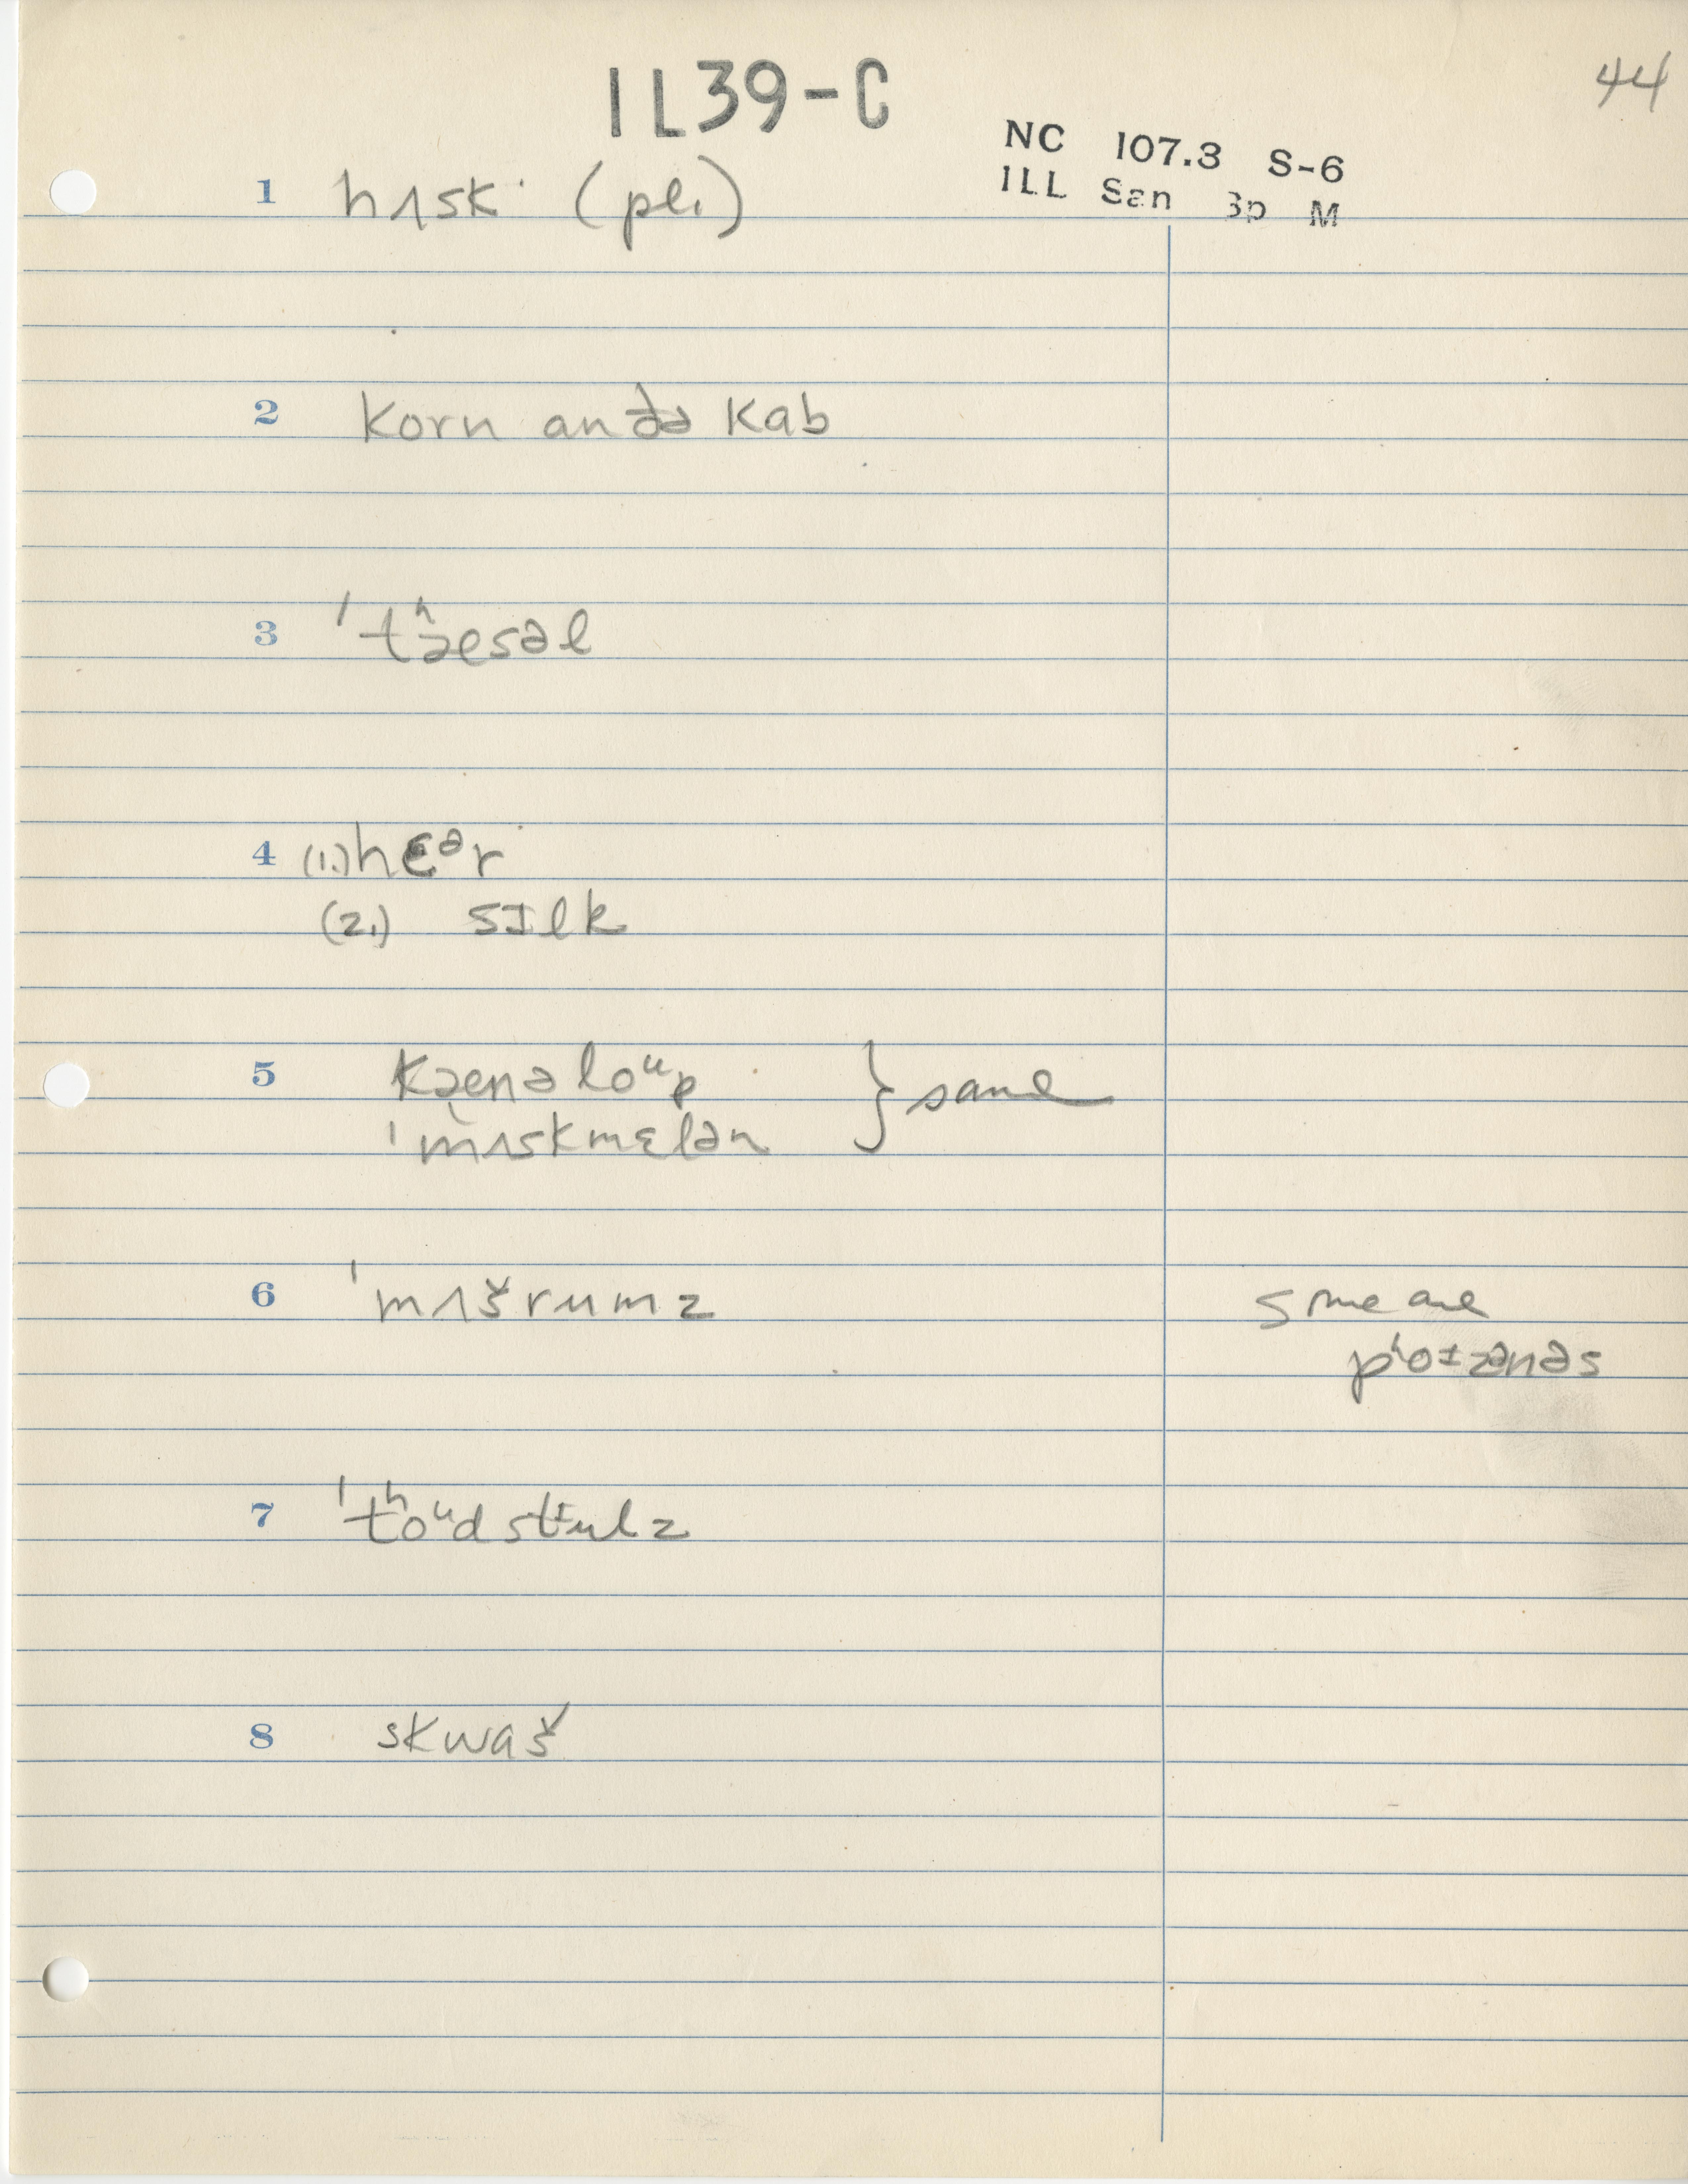 44
1L39-C
NC 107.3 S-6
ILL San 3p M
1 hʌsk (pl.)
2 korn an ðə kab
3 ˈtʰæsəl
4 (1.) hɛᵊr
(2.) sɪlk
5 kænəloᵘp } same
ˈmʌskmɛlən
6 ˈmʌšrumz
some are
pʰoɪzənəs
7 ˈtʰoᵘdstɨulz
8 skwaš